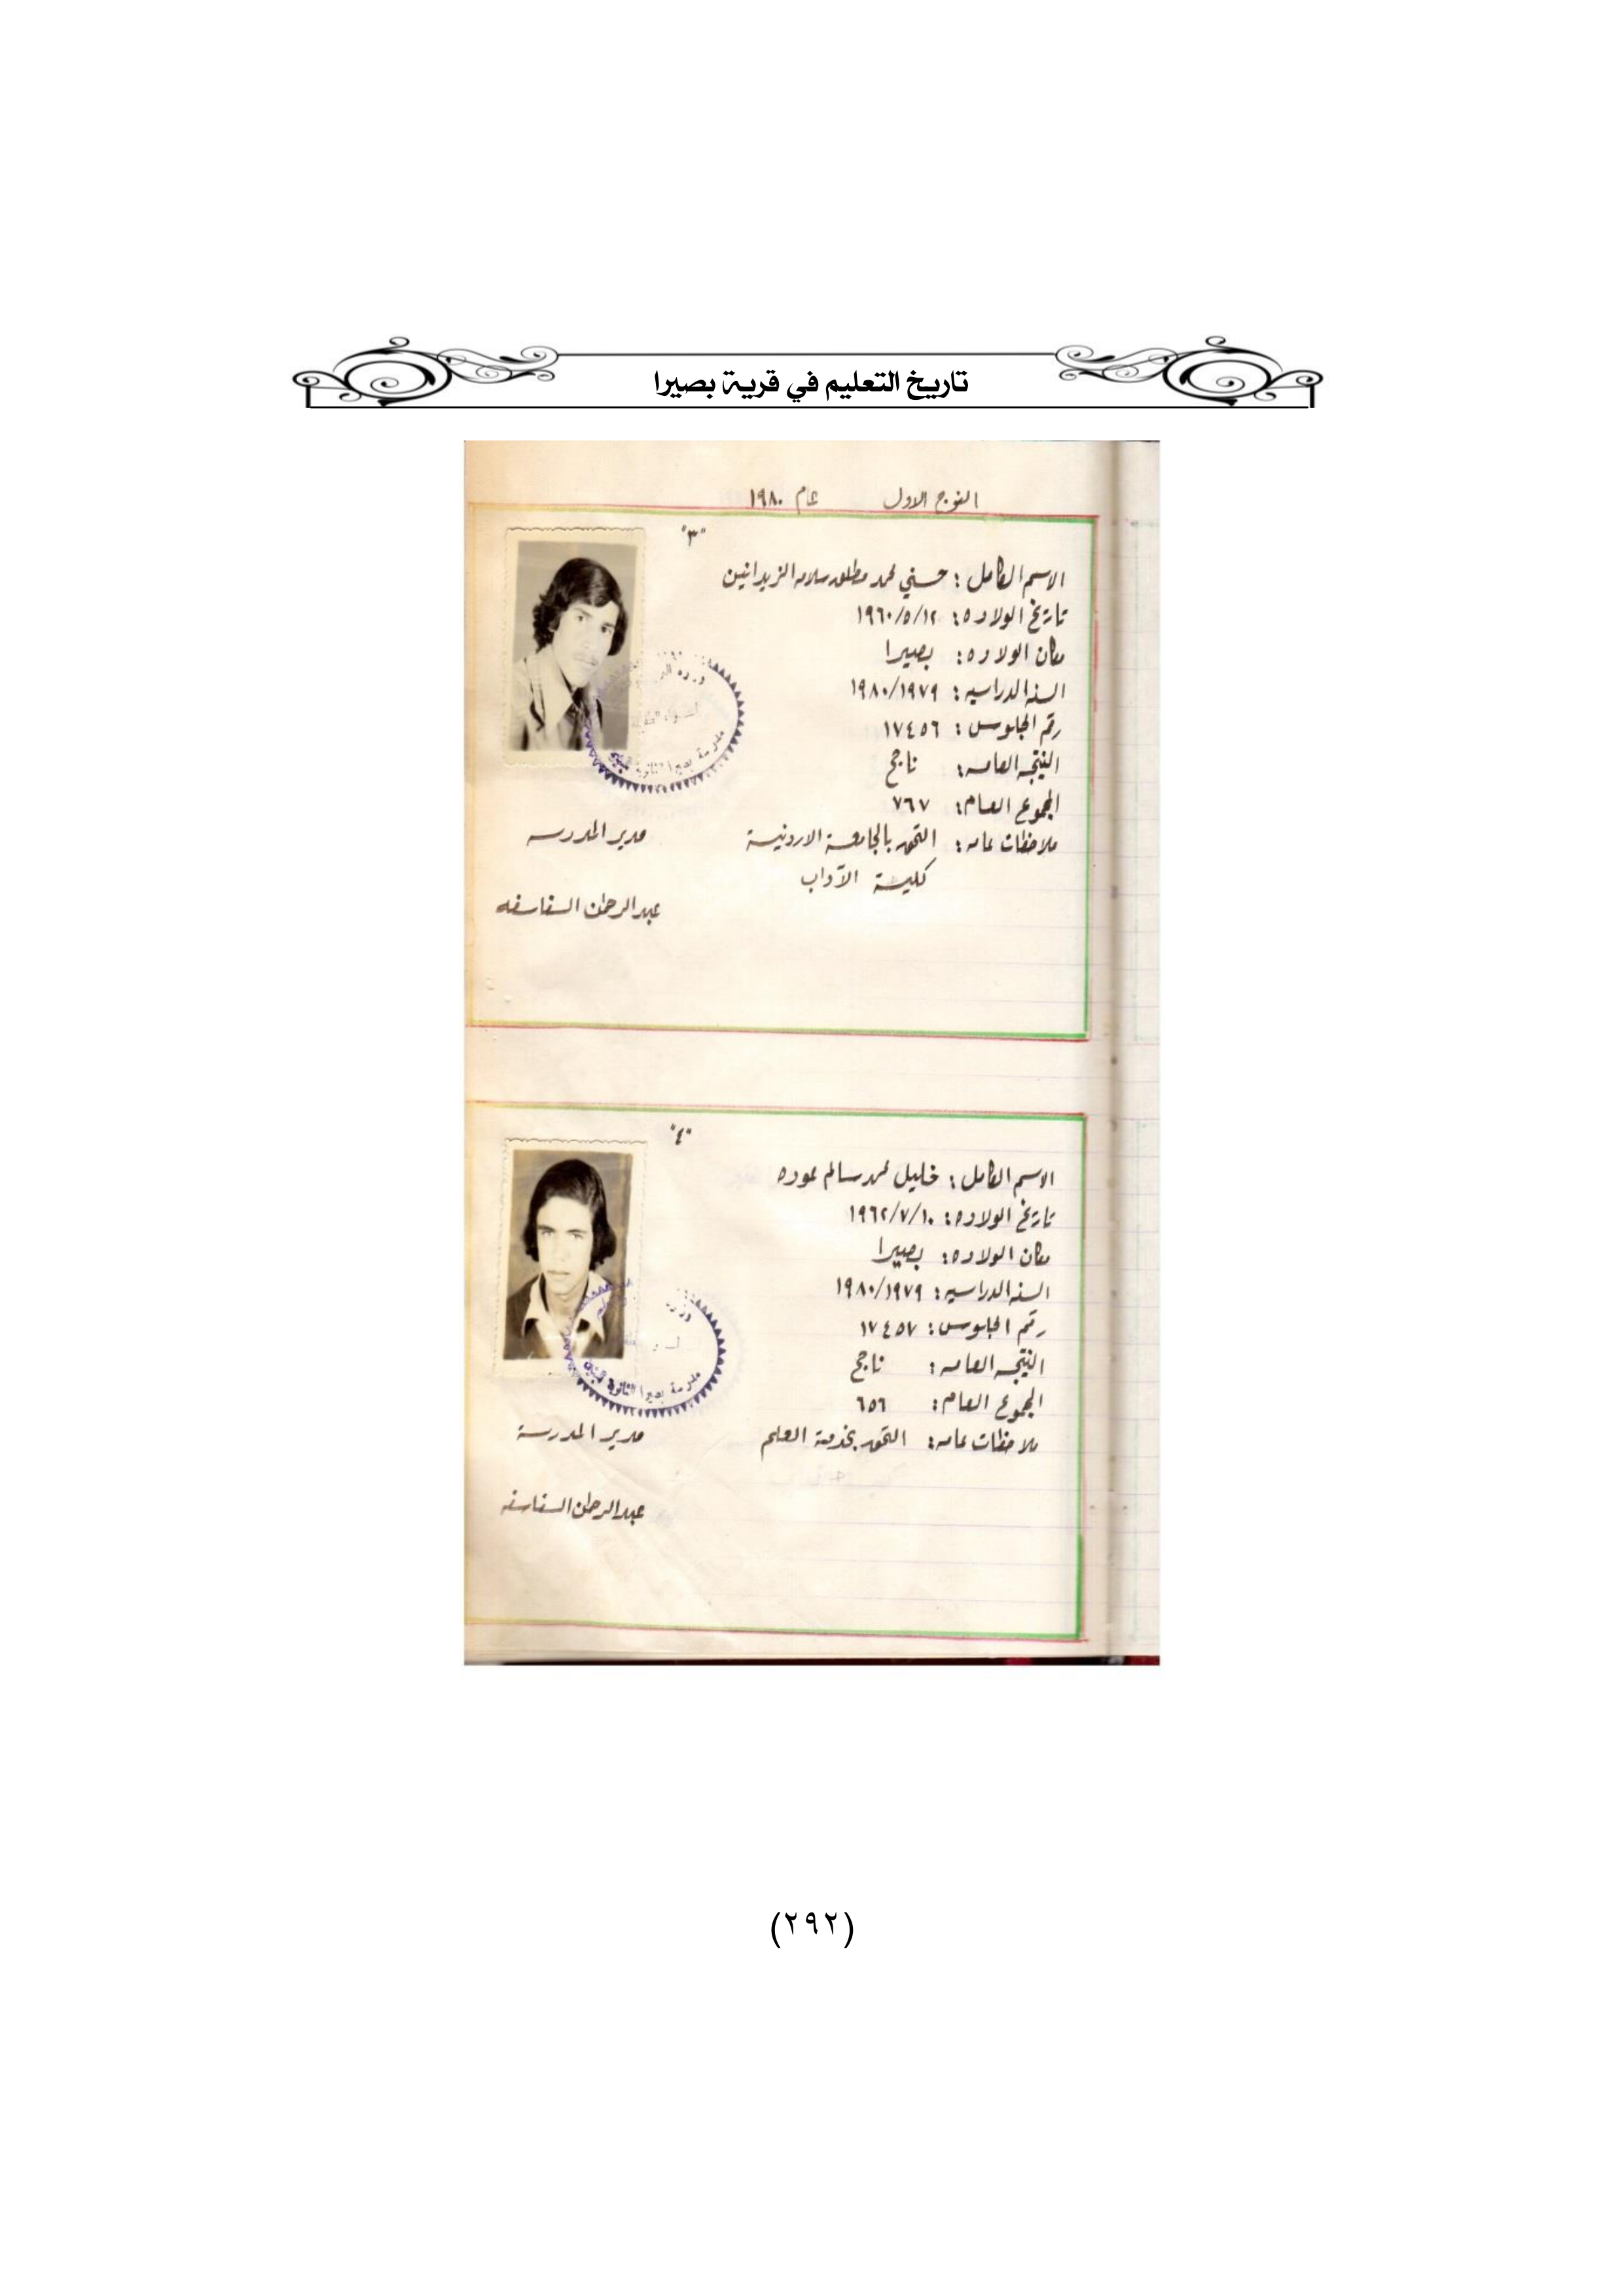 تاريخ التعليم في قرية بصيرا
الفوج الاول عام ١٩٨٠
"٣"
الاسم الكامل : حسني محمد مطلق سلامه الزيدانين
تاريخ الولاده : ١٩٦٠/٥/١٢
مكان الولاده : بصيرا
السنه الدراسيه : ١٩٨٠/١٩٧٩
رقم الجلوس : ١٧٤٥٦
النتيجه العامه : ناجح
المجموع العام : ٧٦٧
ملاحظات عامه : التحق بالجامعة الاردنية
كلية الآداب
مدير المدرسه
عبدالرحمن السفاسفه
مدرسة بصيرا الثانوية للبنين
"٤"
الاسم الكامل : خليل محمد سالم عوده
تاريخ الولاده : ١٩٦٢/٧/١٠
مكان الولاده : بصيرا
السنه الدراسيه : ١٩٨٠/١٩٧٩
رقم الجلوس : ١٧٤٥٧
النتيجه العامه : ناجح
المجموع العام : ٦٥٦
ملاحظات عامه : التحق بخدمة العلم
مدير المدرسة
عبدالرحمن السفاسفه
مدرسة بصيرا الثانوية للبنين
(٢٩٢)